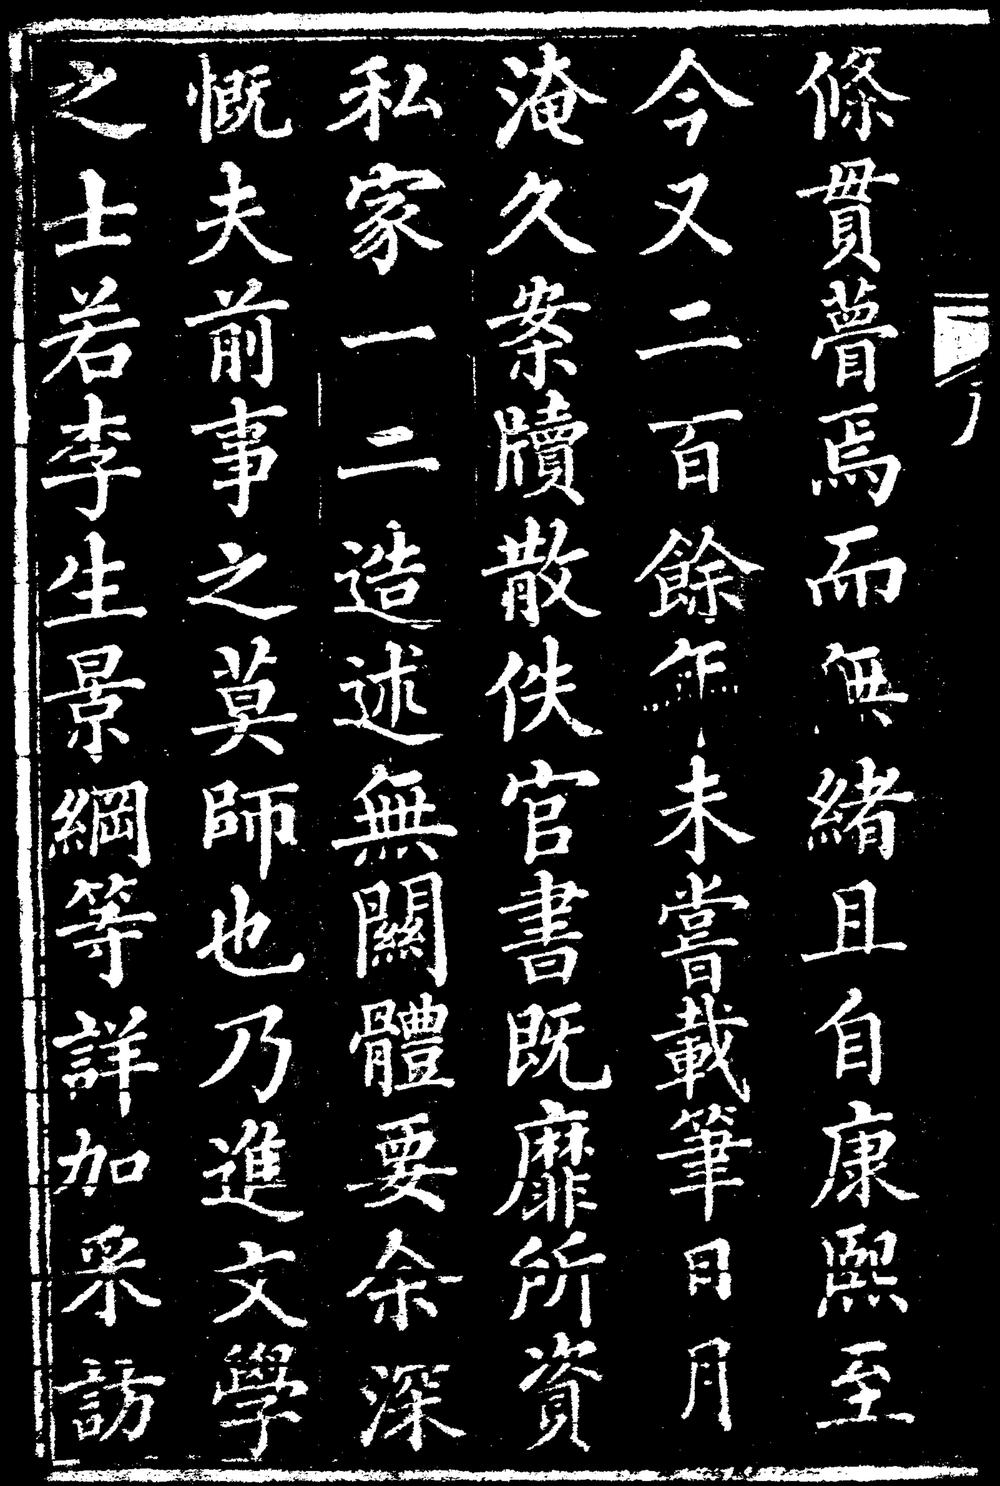 條貫瞢焉而無緒且自康熙至
今又二百餘年未嘗載筆日月
淹久案牘散佚官書既靡所資
私家一二造述無關體要余深
慨夫前事之莫師也乃進文學
之士若李生景綱等詳加采訪